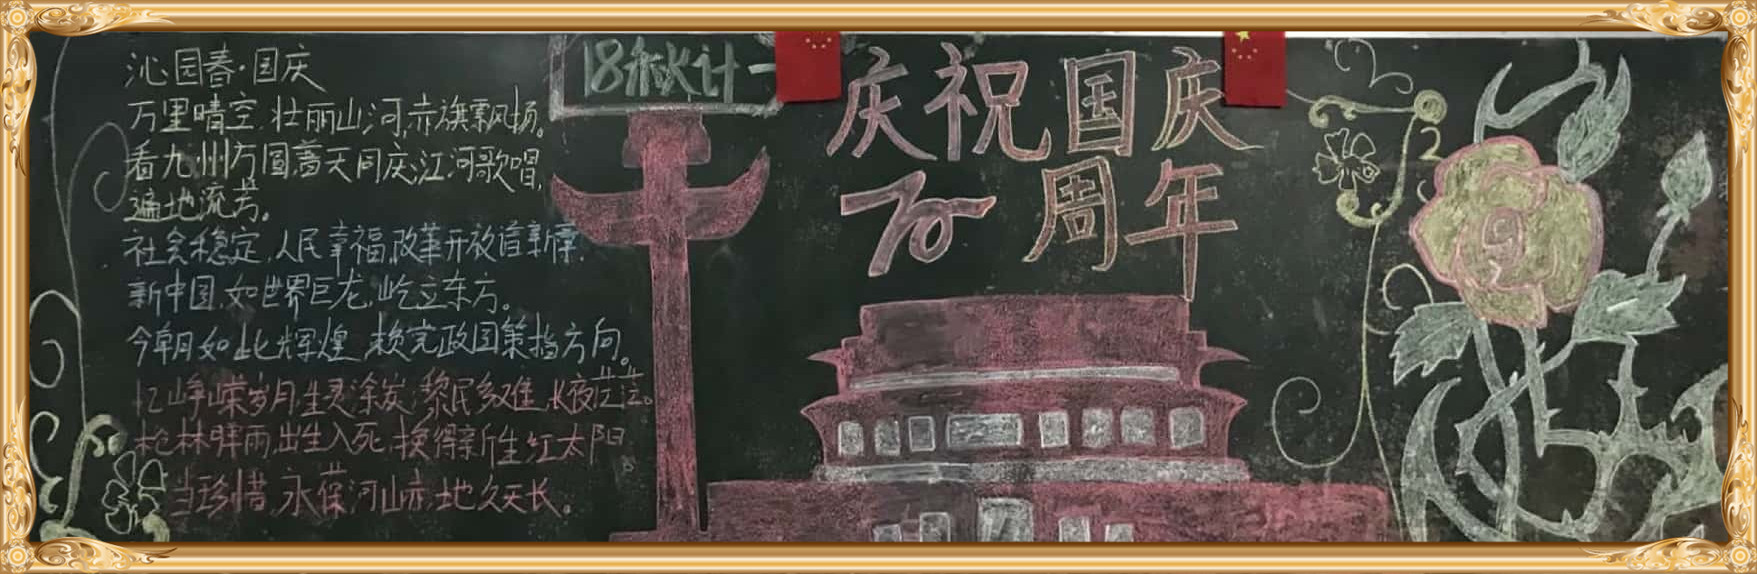 沁园春·国庆
万里晴空,壮丽山河,赤旗飘扬。
看九州方圆,普天同庆,江河歌唱,
遍地流芳。
社会稳定,人民幸福,改革开放谱新章,
新中国,如世界巨龙,屹立东方。
今朝如此辉煌,赖党政国策指方向。
忆峥嵘岁月,生灵涂炭,黎民多难,长夜茫茫。
枪林弹雨,出生入死,换得新生红太阳
当珍惜,永葆河山赤,地久天长。
18秋计一
庆祝国庆
70周年